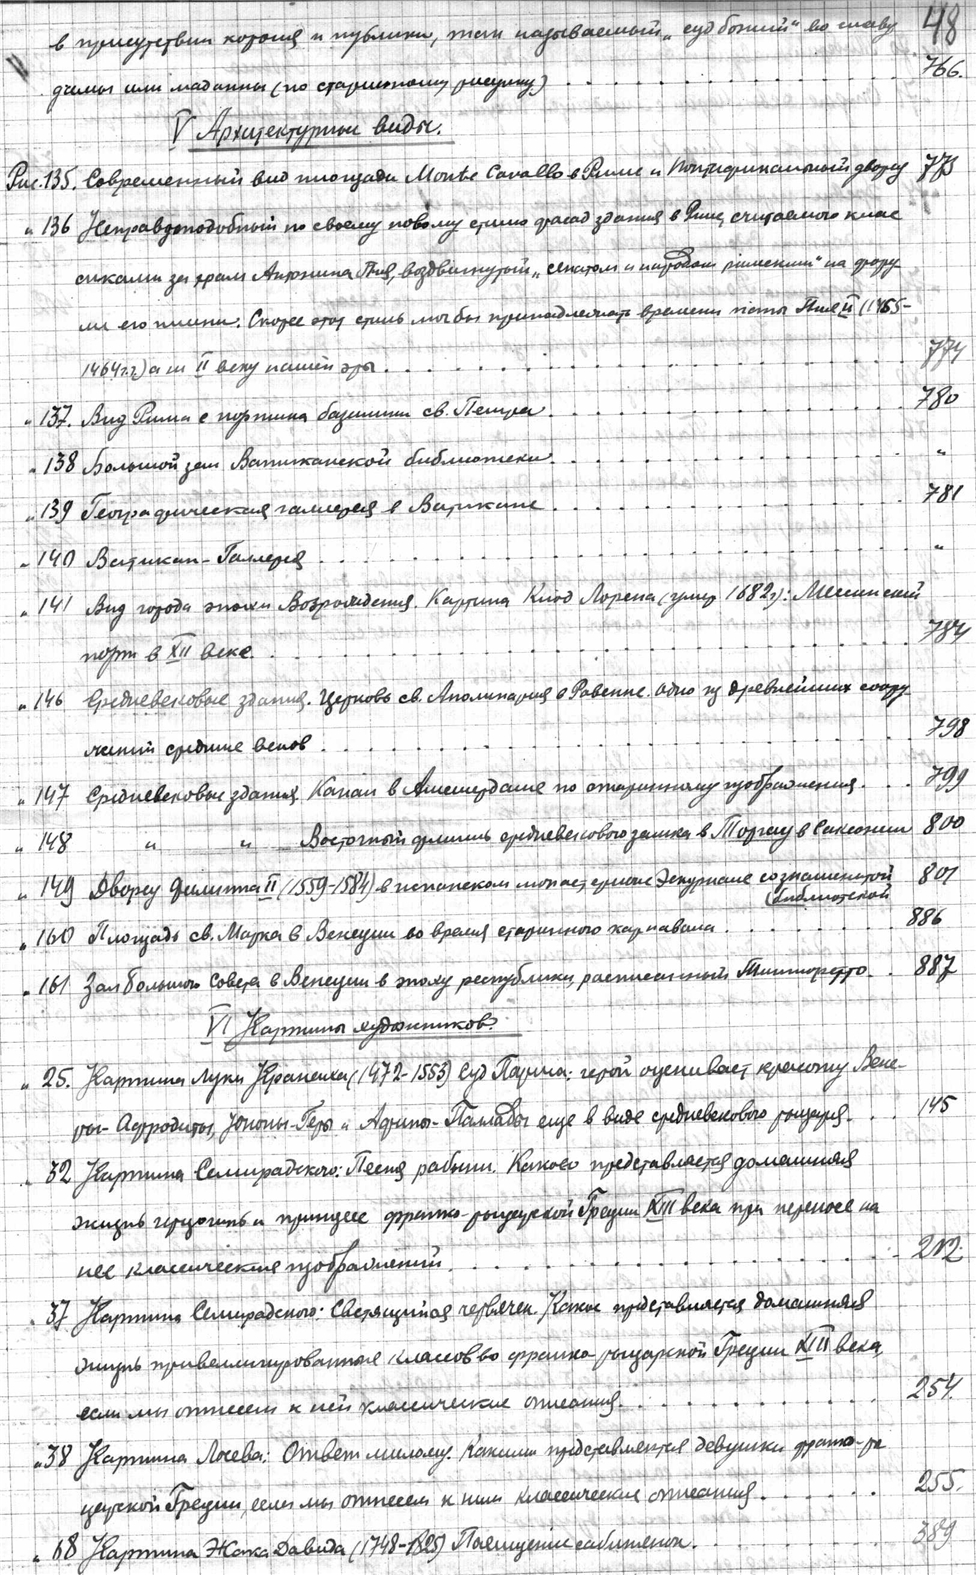 48
в присутствии короля и публики, так называемый „суд божий“ во славу
дамы или мадонны (по старинному рисунку) . . . 766.
V Архитектурные виды.
Рис. 135. Современный вид площади Monte Cavallo в Риме и Понтификальный дворец 773
„ 136 Неправдоподобный по своему новому стилю фасад здания в Риме, считаемого клас
сиками за храм Антонина Пия, воздвигнутый „сенатом и народом римским“ на фору
ме его имени. Скорее этот стиль мог бы принадлежать времени папы Пия II (1455-
1464 г.г.) а не II веку нашей эры . . . 774
„ 137. Вид Рима с портика базилики св. Петра . . . 780
„ 138 Большой зал Ватиканской библиотеки . . . „
„ 139 Географическая галлерея в Ватикане . . . 781
„ 140 Ватикан-Галлерея . . . „
„ 141 Вид города эпохи Возрождения. Картина Клод Лорена (умер 1682 г): Мессинский
порт в XII веке . . . 784
„ 146 Средневековые здания. Церковь св. Аполинария в Равенне. Одно из древнейших соору
жений средние веков . . . 798
„ 147 Средневековые здания. Канал в Амстердаме по старинному изображения . . . 799
„ 148 „ „ Восточный флигель средневекового замка в Торгау в Саксонии 800
„ 149 Дворец Филиппа II (1559-1584) в испанском монастыре Эскуриале со знаменитой 801
(библиотекой
„ 160 Площадь св. Марка в Венеции во время старинного карнавала . . . 886
„ 161 Зал Большого Совета в Венеции в эпоху республики, расписанный Тинторетто . . 887
VI Картины художников.
„ 25. Картина Луки Кранаха (1472-1553) Суд Париса: герой оценивает красоту Вене-
ры-Афродиты, Юноны-Геры и Афины-Паллады еще в виде средневекового рыцаря . . 145
„ 32 Картина Семирадского: Песня рабыни. Каково представляется домашняя
жизнь герцогинь и принцесс франко-рыцарской Греции XIII века при переносе на
нее классических изображений . . . 212.
„ 37 Картина Семирадского: Светящийся червячек. Какою представляется домашняя
жизнь привеллигированных классов во франко-рыцарской Греции XIII века,
если мы отнесем к ней классические описания . . . 254.
„ 38 Картина Лосева: Ответ милому. Какими представляются девушки франко-ры
царской Греции, если мы отнесем к ним классические описания . . . 255.
„ 68 Картина Жака Давида (1748-1825) Похищение сабинянок . . . 389